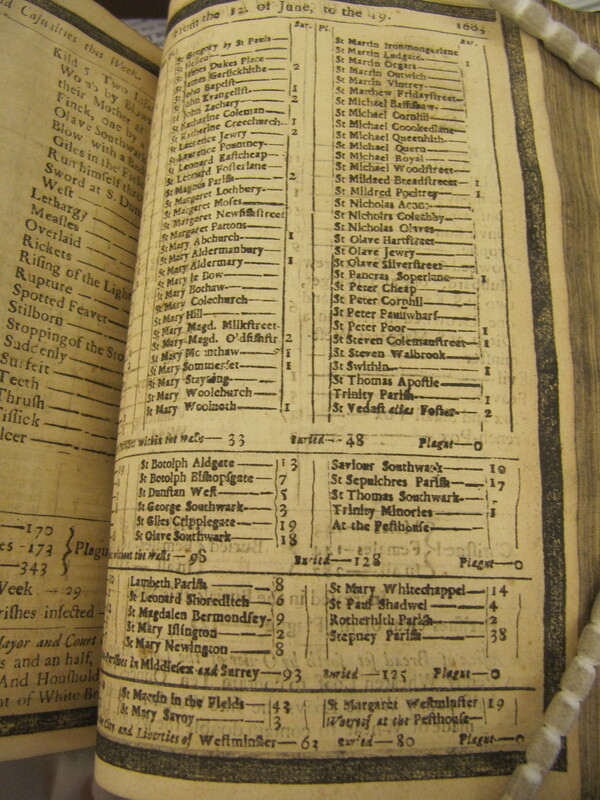 d Casualties this Week
Kild 5 Two
Wo by
their Mother
Finck, one at
Olave Southwark
Blow with a
Giles in the
Run himself thro
Sword at S. Dun
West
Lethargy
Measles
Overlaid
Rickets
Rising of the Light
Rupture
Spotted Feaver
Stilborn
Stopping of the Sto
Suddenly
Surfeit
Teeth
Thrush
Tissick
lcer
170
es -173 } Plagu
343
Week — 29
rishes infected
Mayor and Court
s and an half,
And Houshold
nt of White-B
From the 12. of June, to the 19. 1665
Bur. Pl. Bur.
St Gregory by St Pauls
St Hellen
St James Dukes Place
St James Garlickhithe 2
St John Baptist
St John Evangelist 1
St John Zachary 2
St Katharine Coleman
St Katharine Creechurch 1
St Lawrence Jewry 2
St Laurence Pountney
St Leonard Eastcheap
St Leonard Fosterlane
St Magnus Parish 2
St Margaret Lothbury
St Margaret Moses 1
St Margaret Newfishstreet
St Margaret Pattons
St Mary Abchurch 1
St Mary Aldermanbury
St Mary Aldermary 1
St Mary le Bow
St Mary Bothaw
St Mary Colechurch
St Mary Hill
St Mary Magd. Milkstreet
St Mary Magd. Oldfishstr 2
St Mary Mounthaw 1
St Mary Sommerset 1
St Mary Stayning
St Mary Woolchurch
St Mary Woolnoth 1
St Martin Ironmongerlane
St Martin Ludgate 1
St Martin Orgars
St Martin Outwich
St Martin Vintrey
St Matthew Fridaystreet
St Michael Bassishaw
St Michael Cornhil
St Michael Crookedlane
St Michael Queenhith
St Michael Quern
St Michael Royal
St Michael Woodstreet
St Mildred Breadstreet 1
St Mildred Poultrey 1
St Nicholas Acons
St Nicholas Coleabby
St Nicholas Olaves
St Olave Hartstreet
St Olave Jewry
St Olave Silverstreet
St Pancras Soperlane 1
St Peter Cheap
St Peter Cornhil
St Peter Paulswharf
St Peter Poor 1
St Steven Colemanstreet 1
St Steven Walbrook
St Swithin 1
St Thomas Apostle
Trinity Parish 1
St Vedast alias Foster 2
within the Walls — 33 Buried — 48 Plague — 0
St Botolph Aldgate 13
St Botolph Bishopsgate 7
St Dunstan West 5
St George Southwark 3
St Giles Cripplegate 19
St Olave Southwark 18
Saviour Southwark 10
St Sepulchres Parish 17
St Thomas Southwark
Trinity Minories 1
At the Pesthouse
without the Walls — 98 Buried — 128 Plague — 0
Lambeth Parish 8
St Leonard Shoreditch 6
St Magdalen Bermondsey 9
St Mary Islington 2
St Mary Newington 8
St Mary Whitechappel 14
St Paul Shadwel 4
Rotherhith Parish 2
Stepney Parish 38
Parishes in Middlesex and Surrey — 93 Buried — 125 Plague — 0
St Martin in the Fields 43
St Mary Savoy 3
St Margaret Westminster 19
Whereof at the Pesthouse
City and Liberties of Westminster — 62 Buried — 80 Plague — 0